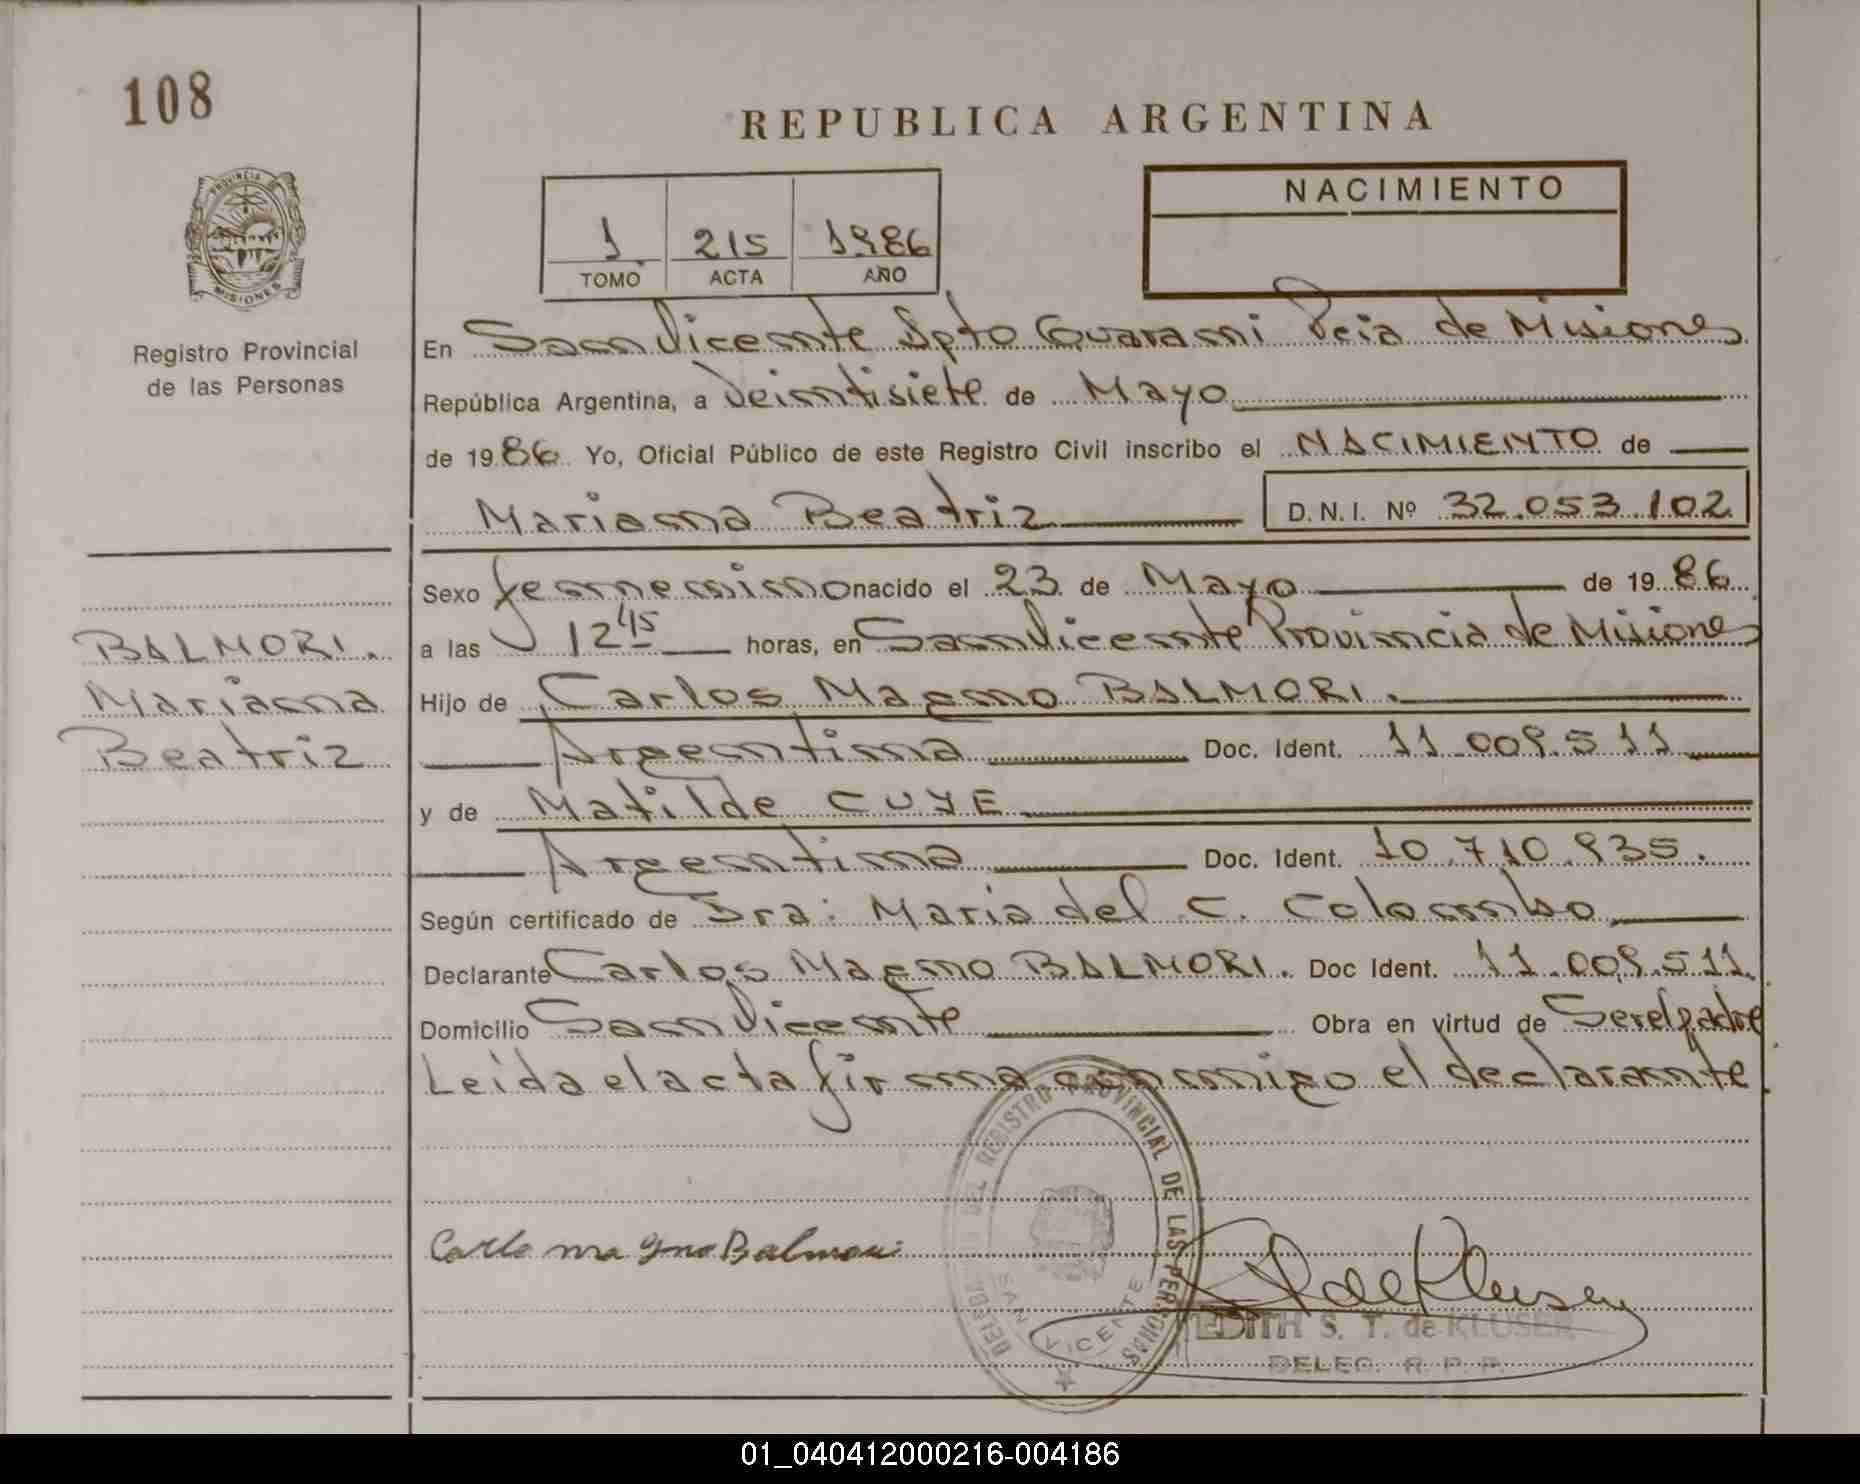 108
REPUBLICA ARGENTINA
PROVINCIA DE
MISIONES
Registro Provincial
de las Personas
1 215 1986
TOMO ACTA AÑO
NACIMIENTO
En San Vicente Dpto Guarani Pcia de Misiones
República Argentina, a Veintisiete de Mayo
de 1986 Yo, Oficial Público de este Registro Civil inscribo el NACIMIENTO de
Mariana Beatriz D.N.I. Nº 32.053.102
Sexo femenino nacido el 23 de Mayo de 1986
a las 12 45 horas, en San Vicente Provincia de Misiones
BALMORI.
Mariana
Beatriz
Hijo de Carlos Magno BALMORI.
Argentina Doc. Ident. 11.009.511
y de Matilde CUYE
Argentina Doc. Ident. 10.710.935.
Según certificado de Dra: Maria del C. Colombo
Declarante Carlos Magno BALMORI. Doc Ident. 11.009.511.
Domicilio San Vicente Obra en virtud de Ser el padre
Leida el acta firma conmigo el declarante
Carlo magno Balmori
DEL REGISTRO PROVINCIAL DE LAS PERSONAS
SAN VICENTE
EDITH S. T. de KLUSER
DELEG. R. P. P.
01_040412000216-004186